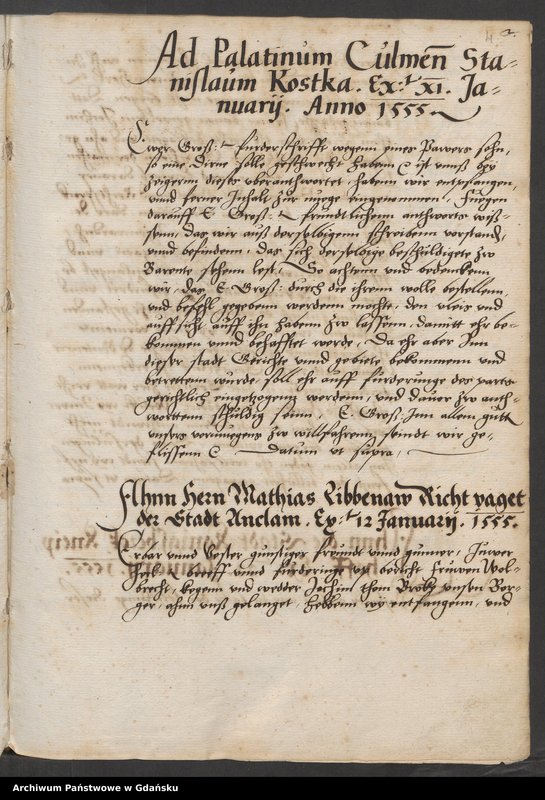 4. 2.
Ad Palatinum Culmen̄ Sta-
nislaum Kostka. Ex:t XI. Ja-
nuarij. Anno 1555.
Ewer Groß: fürderschrifft wegenn eines Pawers sohn,
so eine Dirne solle geschwecht habenn ist vnnß bey
zeigernn dieses vberanthwortet, habenn wir entpfangen,
vnnd ferner Inhalt zur nuege eingenommen, Fuegen
darauff E Groß: freundtlichenn anthworts wiß-
senn, das wir auß derselbigenn schreibenn vorstandt,
vnnd befindenn, das sich derselbige beschuldigete zw
Barente stehenn lest, So achtenn vnd bedenckenn
wir, das E Groß: durch die ihrenn wolle bestellenn,
vnd befehl gegebenn werdenn mochte, den vleis vnd
auffsicht auff ihn habenn zw lassenn, damitt ehr be-
kommen vnnd behafftet werde, Da ehr aber Inn
dieser stadt Gerichte vnnd gebiete bekommenn vnd
betrettenn wurde, soll ehr auff furderunge des parts
gerichtlich eingezogenn werdenn, vnd dauor zw anth-
wortten schuldig seinn, E. Groß: Inn allem gutt
vnsers vermuegens zw willfahrenn, seindt wir ge-
flissenn Datum vt supra,
Ahnn Hern Mathias Libbenaw Richt vaget
der Stadt Anclam. Ex:t 12 Januarij. 1555.
Erbar vnnd vester gunstiger freundt vnnd gunner, Juwer
breeff vnnd furderinge vp Wol-
brecht, kegenn vnd wedder Jochim thom vnsen Bor-
ger, ahnn vnß gelanget, hebbenn wy entfangenn, vnd
Archiwum Państwowe w Gdańsku